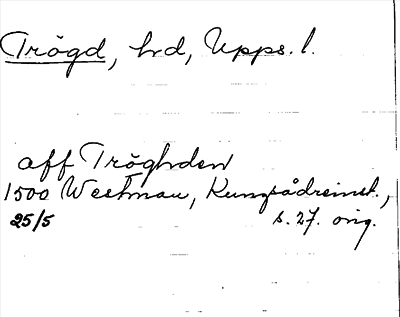 Trögd, hd, Upps. l.
aff Tröghden
1500 Westman, Kungsådreinst.,
25/5 s. 27. orig.